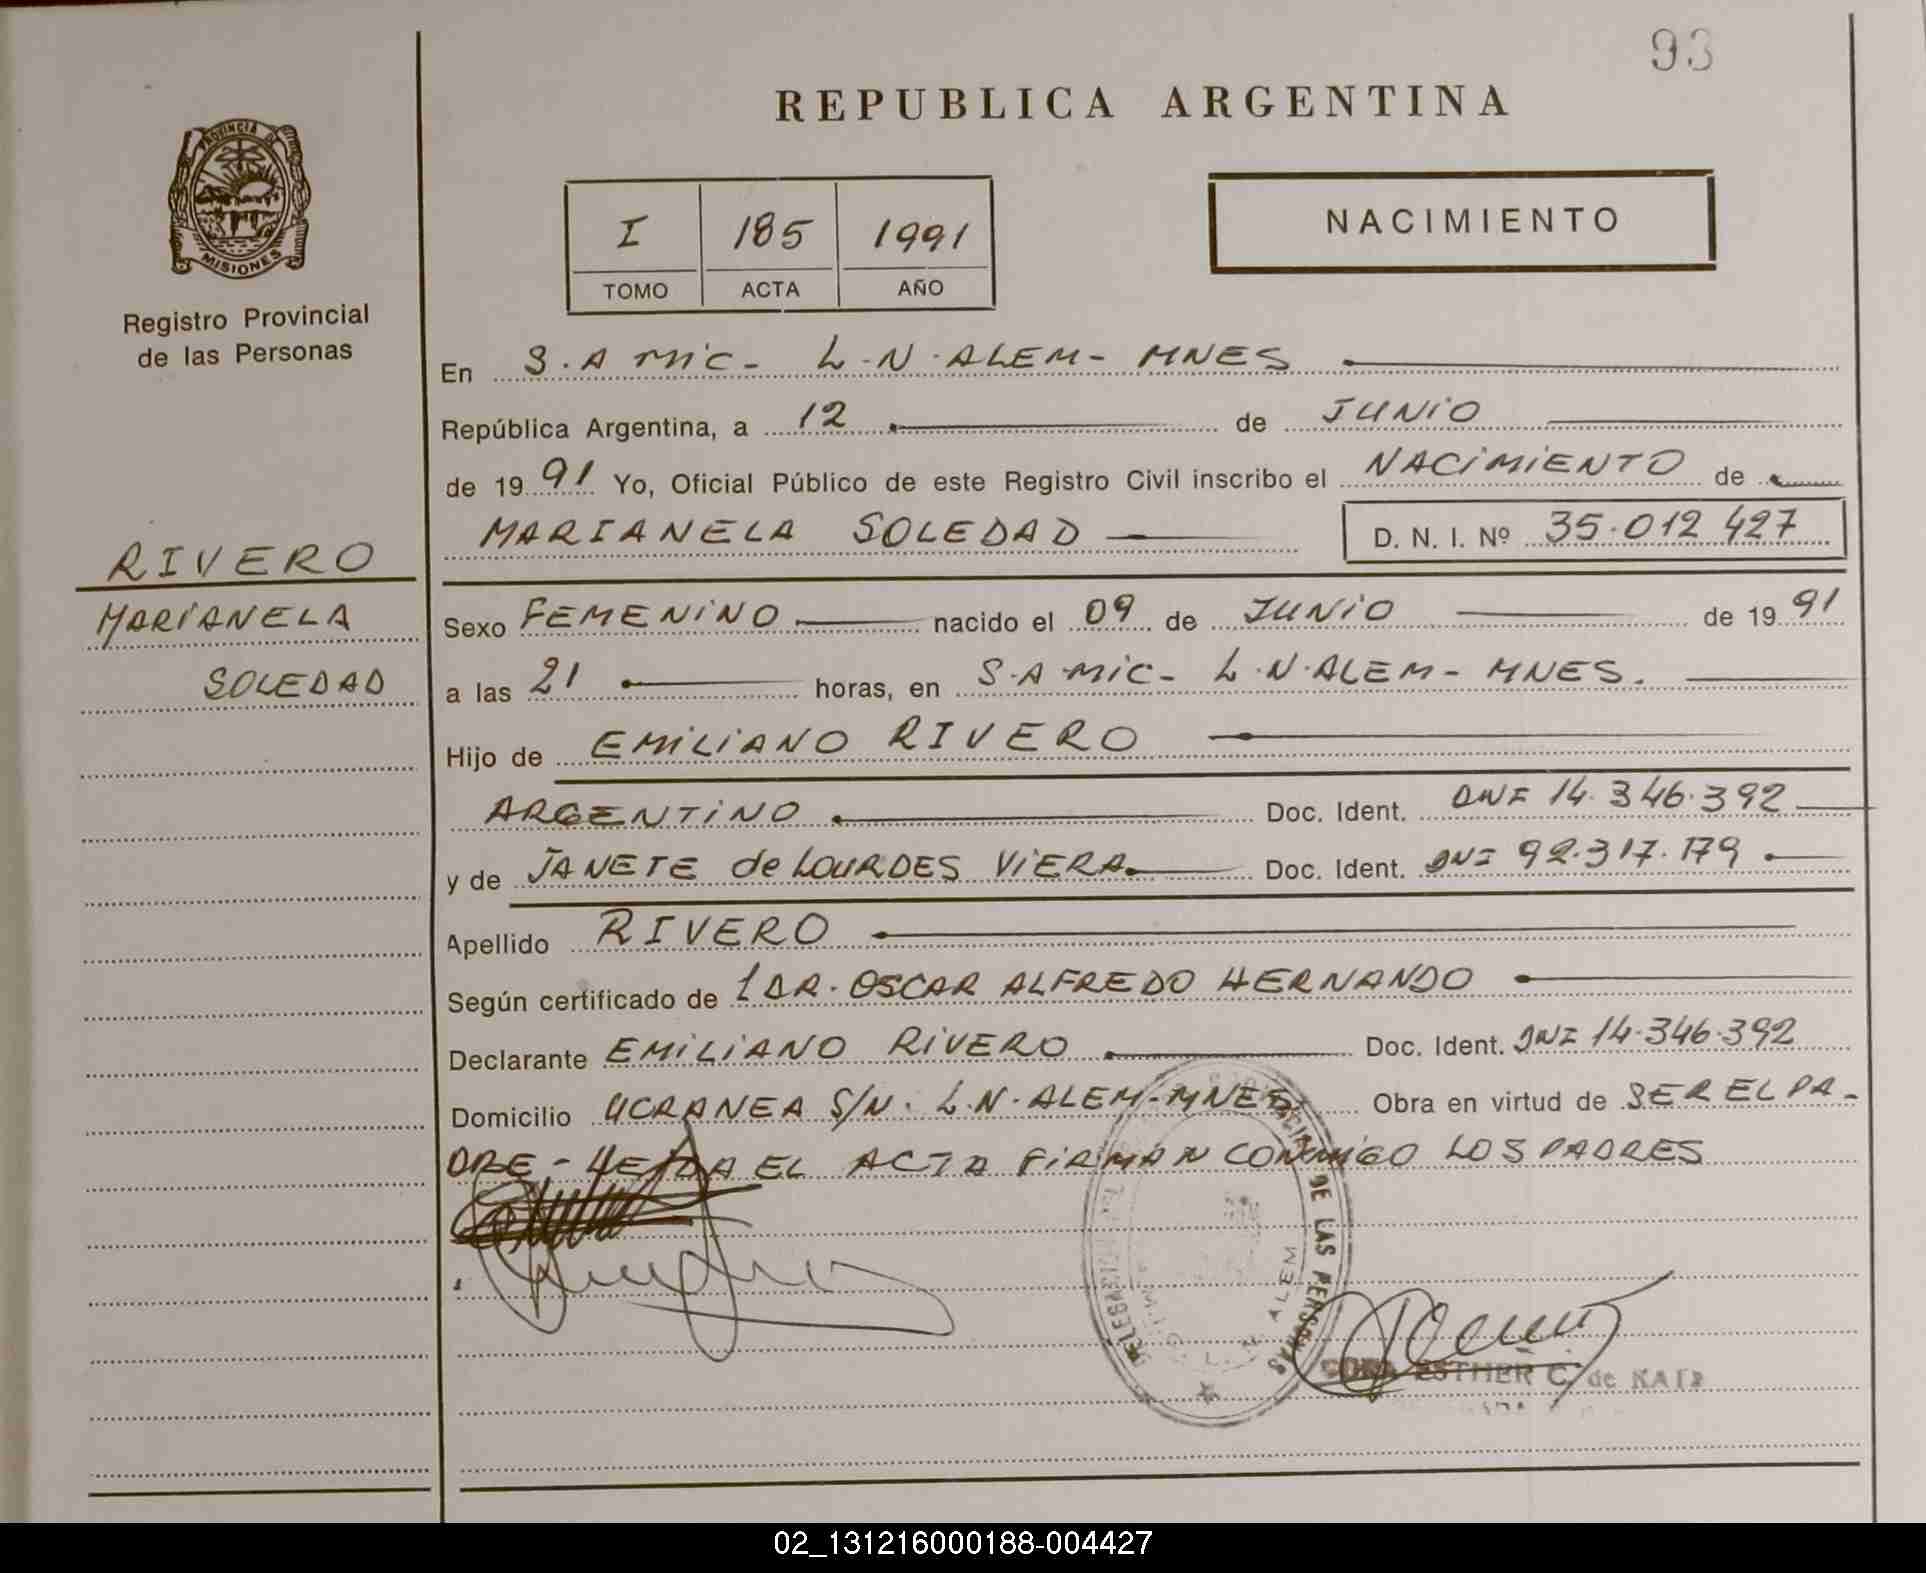 93
REPUBLICA ARGENTINA
PROVINCIA DE
MISIONES
Registro Provincial
de las Personas
I 185 1991
TOMO ACTA AÑO
NACIMIENTO
En S.A MIC- L.N.ALEM- MNES
República Argentina, a 12 de JUNIO
de 1991 Yo, Oficial Público de este Registro Civil inscribo el NACIMIENTO de
MARIANELA SOLEDAD D. N. I. Nº 35.012 427
RIVERO
MARIANELA
SOLEDAD
Sexo FEMENINO nacido el 09 de JUNIO de 1991
a las 21 horas, en S.A MIC- L.N.ALEM- MNES.
Hijo de EMILIANO RIVERO
ARGENTINO Doc. Ident. DNI 14.346.392
y de JANETE de LOURDES VIERA Doc. Ident. DNI 92.317.179
Apellido RIVERO
Según certificado de 1 DR. OSCAR ALFREDO HERNANDO
Declarante EMILIANO RIVERO Doc. Ident. DNI 14.346.392
Domicilio UCRANEA S/N. L.N.ALEM-MNES Obra en virtud de SER EL PA-
DRE - LEIDA EL ACTA FIRMAN CONMIGO LOS PADRES
DE LAS PERSONAS
ALEM
ESTHER C. de KATZ
02_131216000188-004427